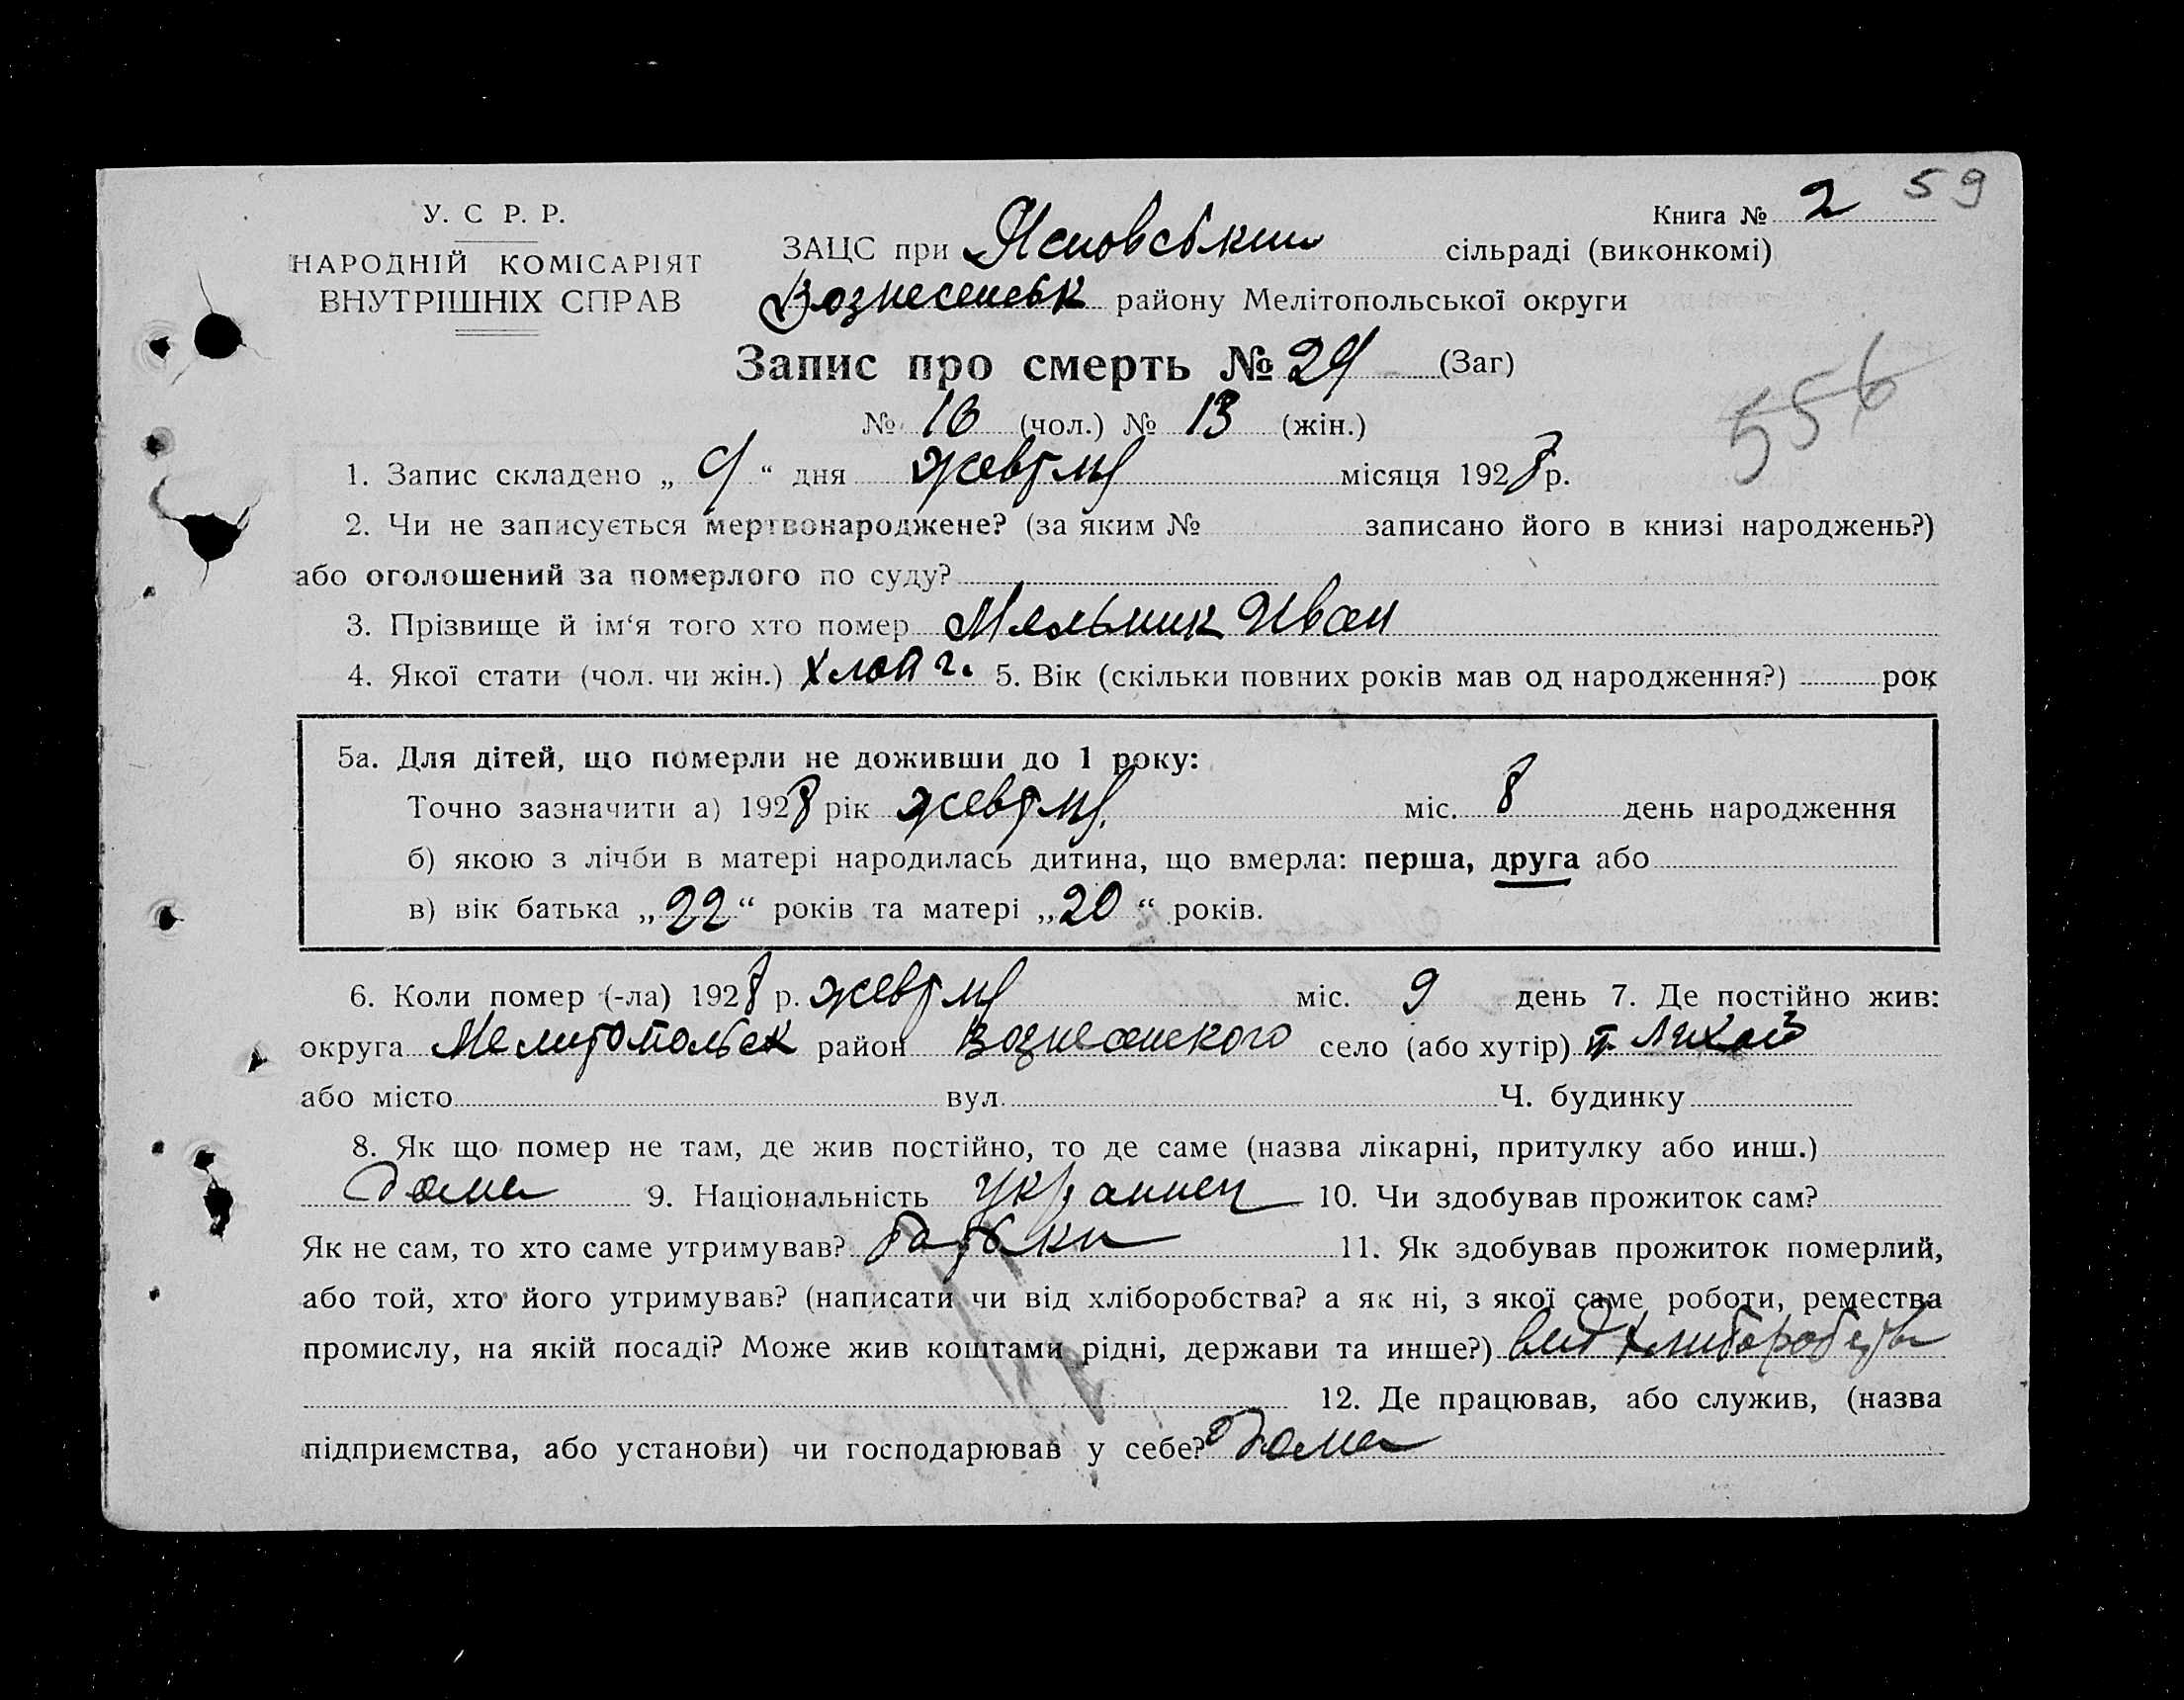 Книга № 2 59
У. С Р. Р.
НАРОДНІЙ КОМІСАРІЯТ
ВНУТРІШНІХ СПРАВ
ЗАЦС при сільраді (виконкомі)
Вознесенськ району Мелітопольської округи
Запис про смерть № 29 (Заг)
№ 16 (чол.) № 13 (жін.)
556
1. Запис складено „ 9 “ дня жевтня місяця 1928 р.
2. Чи не записується мертвонароджене? (за яким № записано його в книзі народжень?)
або оголошений за померлого по суду?
3. Прізвище й ім‘я того хто помер Мельник Иван
4. Якої стати (чол. чи жін.) хлоп ч. 5. Вік (скільки повних років мав од народження?) рок
5а. Для дітей, що померли не доживши до 1 року:
Точно зазначити а) 1928 рік жевтня. міс. 8 день народження
б) якою з лічби в матері народилась дитина, що вмерла: перша, друга або
в) вік батька „ 22 “ років та матері „ 20 “ років.
6. Коли помер (-ла) 1928 р. жевтня міс. 9 день 7. Де постійно жив:
округа Мелитопольск район Вознесенского село (або хутір)
або місто вул. Ч. будинку
8. Як що помер не там, де жив постійно, то де саме (назва лікарні, притулку або инш.)
дома 9. Національність украинец 10. Чи здобував прожиток сам?
Як не сам, то хто саме утримував? батьки 11. Як здобував прожиток померлий,
або той, хто його утримував? (написати чи від хліборобства? а як ні, з якої саме роботи, ремества
промислу, на якій посаді? Може жив коштами рідні, держави та инше?) вид хлиборобства
12. Де працював, або служив, (назва
підприємства, або установи) чи господарював у себе? дома